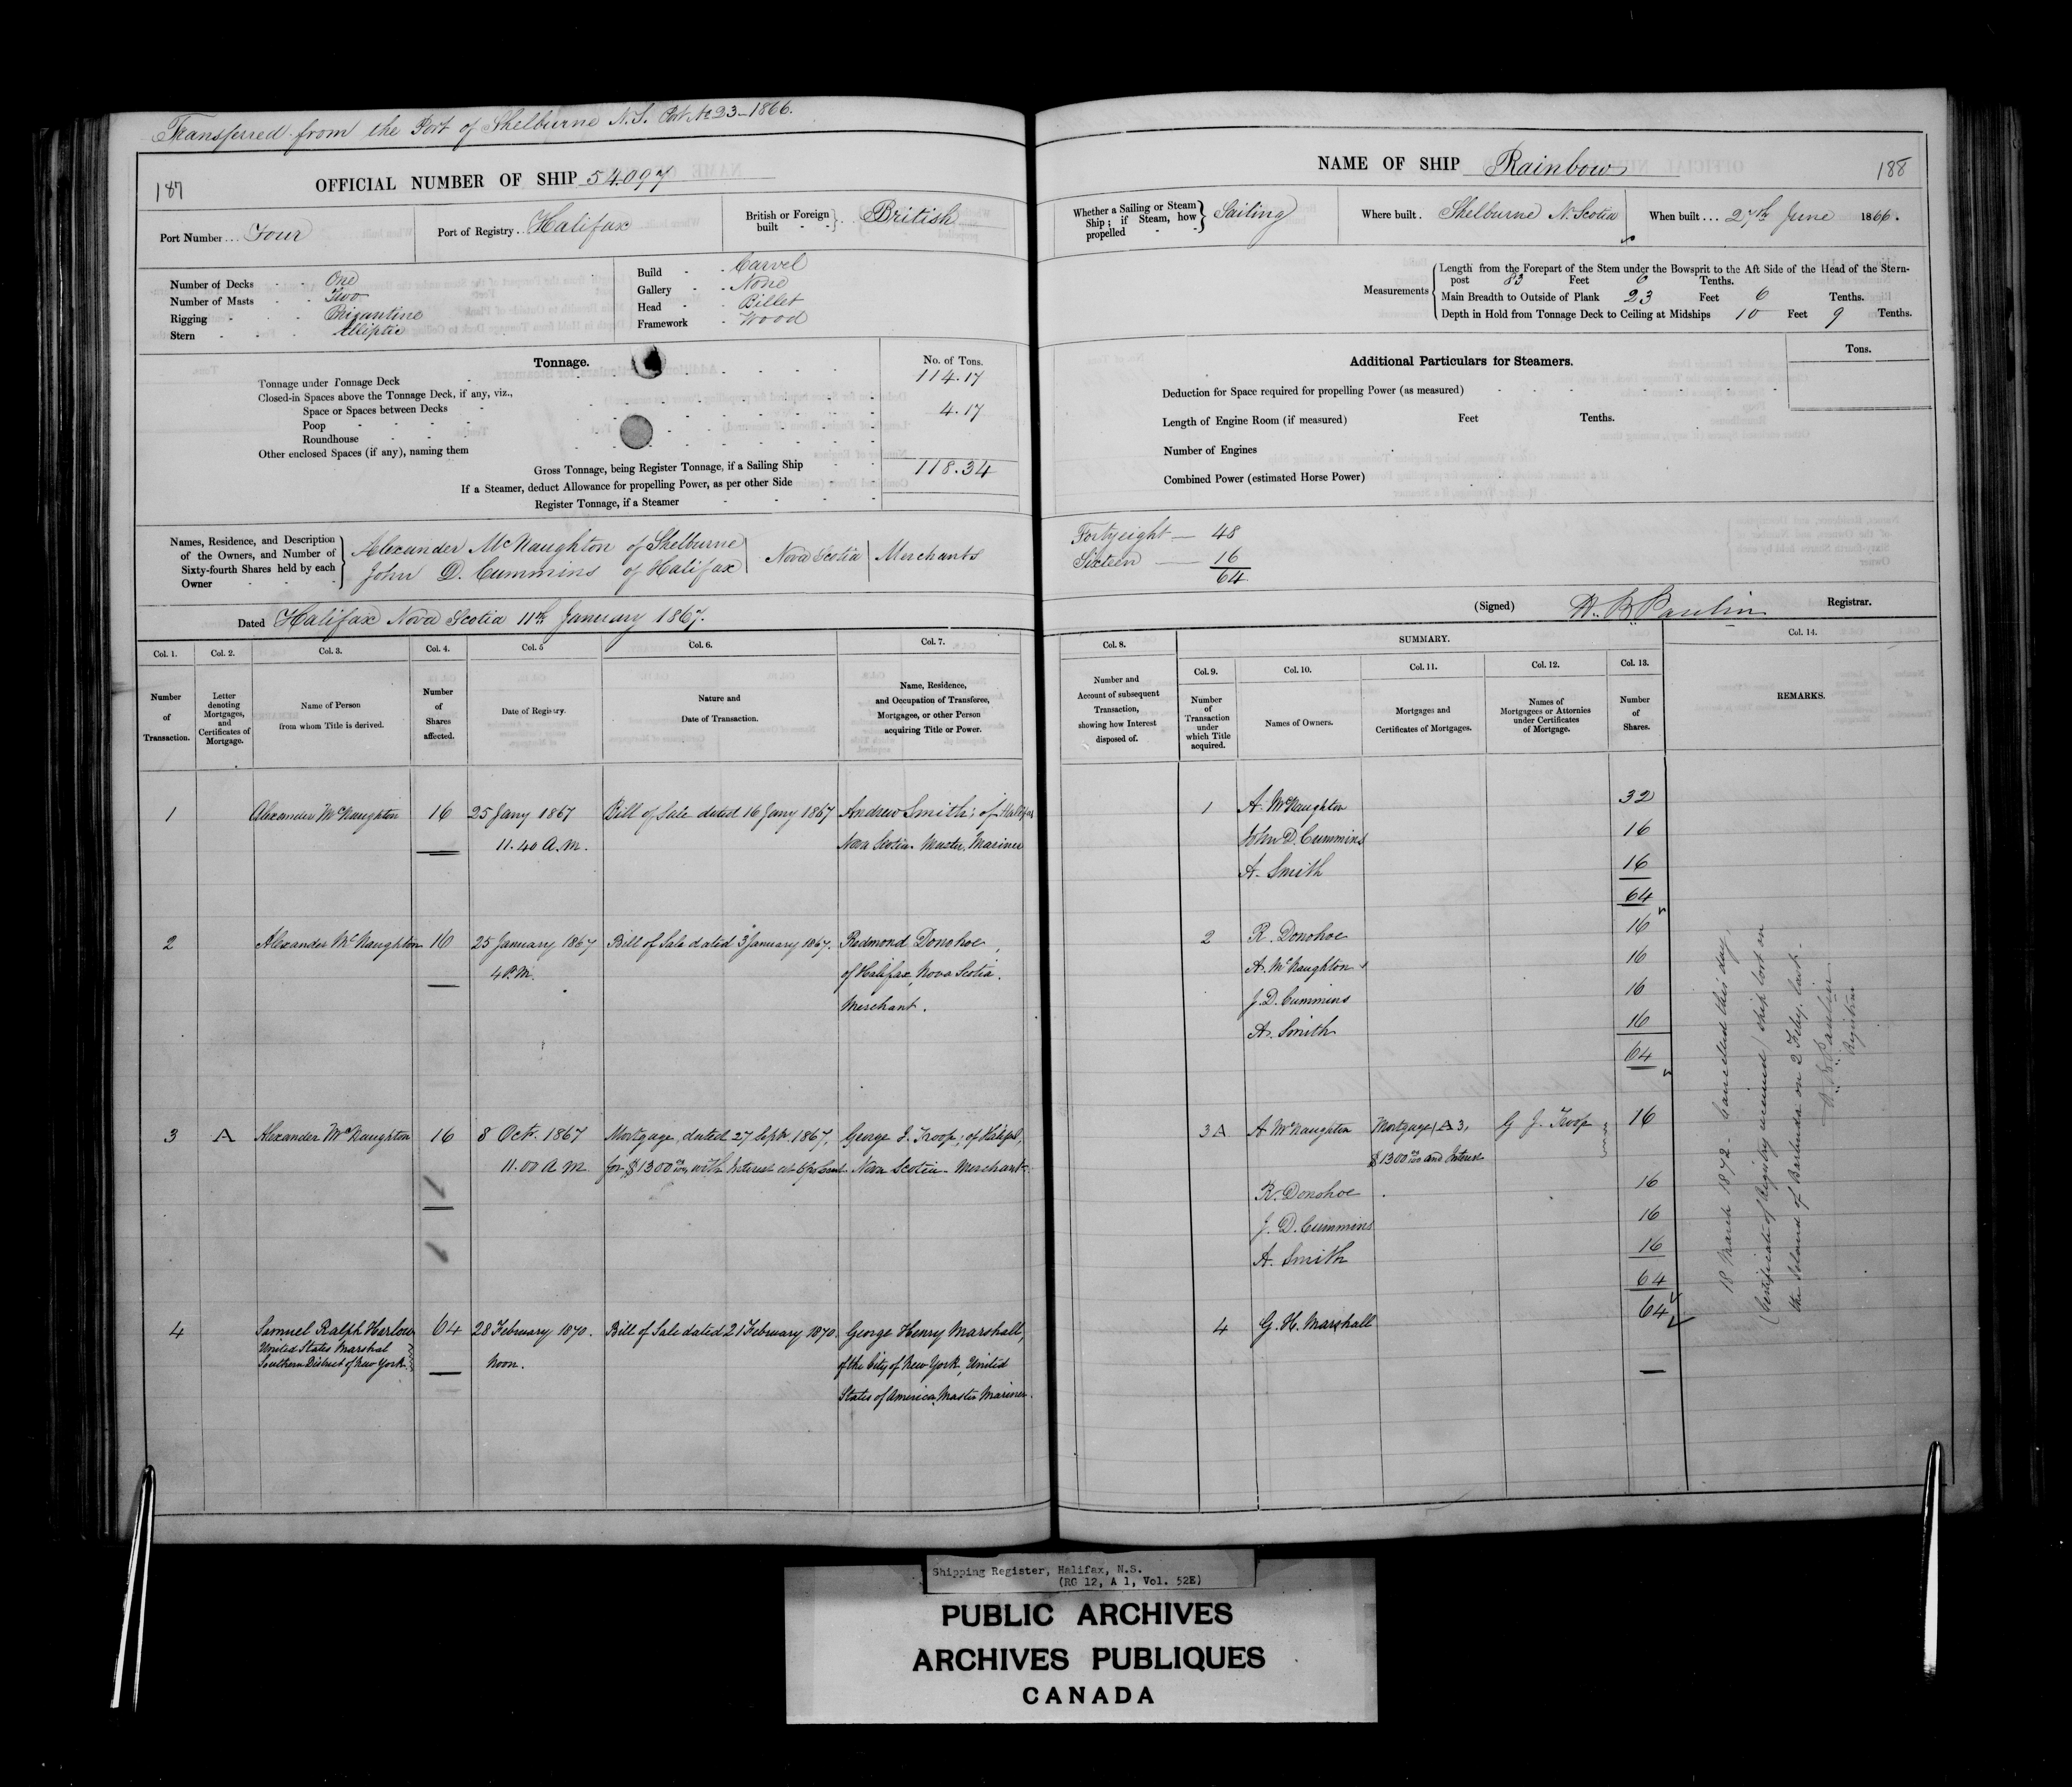 Transferred from the Port of Shelburne N.S. Port No 23-1866.
187
OFFICIAL NUMBER OF SHIP 54.097
Port Number ... Four
Port of Registry .. Halifax
British or Foreign built } British
Number of Decks - - One
Number of Masts - - Two
Rigging - - Brigantine
Stern - - - Elliptic
Build - - Carvel
Gallery - - None
Head - - Billet
Framework - Wood
Tonnage.
No. of Tons.
Tonnage under Tonnage Deck 114.17
Closed-in Spaces above the Tonnage Deck, if any, viz.,
Space or Spaces between Decks 4.17
Poop
Roundhouse
Other enclosed Spaces (if any), naming them
Gross Tonnage, being Register Tonnage, if a Sailing Ship 118.34
If a Steamer, deduct Allowance for propelling Power, as per other Side
Register Tonnage, if a Steamer
Names, Residence, and Description
of the Owners, and Number of
Sixty-fourth Shares held by each
Owner
Alexander McNaughton of Shelburne
John D. Cummins of Halifax
Nova Scotia
Merchants
Dated Halifax Nova Scotia 11th January 1867.
Col. 1.
Number
of
Transaction.
Col. 2.
Letter
denoting
Mortgages,
and
Certificates of
Mortgage.
Col. 3.
Name of Person
from whom Title is derived.
Col. 4.
Number
of
Shares
affected.
Col. 5
Date of Registry.
Col. 6.
Nature and
Date of Transaction.
Col. 7.
Name, Residence,
and Occupation of Transferee,
Mortgagee, or other Person
acquiring Title or Power.
1
Alexander McNaughton
16
25 Jany 1867
11.40 A.M.
Bill of Sale dated 16 Jany 1867
Andrew Smith; of Halifax
Nova Scotia. Master Mariner
2
Alexander McNaughton
16
25 January 1867
4 P.M.
Bill of Sale dated 3 January 1867.
Redmond Donohoe,
of Halifax, Nova Scotia.
Merchant.
3
A
Alexander McNaughton
16
8 Octr. 1867
11.00 A.M.
Mortgage, dated 27 Septr. 1867,
for $1300 00/100 with Interest at 6 per Cent.
George J. Troop; of Halifax,
Nova Scotia. Merchant.
4
Samuel Ralph Harlow
United States Marshal
Southern District of New York.
64
28 February 1870.
Noon.
Bill of Sale dated 21 February 1870.
George Henry Marshall,
of the City of New York, United
States of America, Master Mariner.
NAME OF SHIP Rainbow
188
Whether a Sailing or Steam
Ship; if Steam, how
propelled - -
Sailing
Where built . Shelburne N. Scotia
When built ... 27th June 1866.
Measurements
Length from the Forepart of the Stem under the Bowsprit to the Aft Side of the Head of the Stern-
post 83 Feet 6 Tenths.
Main Breadth to Outside of Plank 23 Feet 6 Tenths.
Depth in Hold from Tonnage Deck to Ceiling at Midships 10 Feet 9 Tenths.
Additional Particulars for Steamers.
Tons.
Deduction for Space required for propelling Power (as measured)
Length of Engine Room (if measured) Feet Tenths.
Number of Engines
Combined Power (estimated Horse Power)
Fortyeight — 48
Sixteen — 16
64
(Signed) Registrar.
Col. 8.
Number and
Account of subsequent
Transaction,
showing how Interest
disposed of.
SUMMARY.
Col. 9.
Number
of
Transaction
under
which Title
acquired.
Col. 10.
Names of Owners.
Col. 11.
Mortgages and
Certificates of Mortgages.
Col. 12.
Names of
Mortgagees or Attornies
under Certificates
of Mortgage.
Col. 13.
Number
of
Shares.
Col. 14.
REMARKS.
1 A. McNaughton 32
John D. Cummins 16
A. Smith 16
64
2 R. Donohoe 16
A. McNaughton 16
J. D. Cummins 16
A. Smith 16
64
3 A A McNaughton Mortgage, A 3, G J. Troop 16
$1300 00/100 and Interest
R. Donohoe 16
J. D. Cummins 16
A. Smith 16
64
4 G. H. Marshall 64
18 March 1872 - Cancelled this day,
(Certificate of Registry received) ship lost on
the Island of Barbuda on 2 Feby last.
Registrar
Shipping Register, Halifax, N.S.
(RG 12, A 1, Vol. 52E)
PUBLIC ARCHIVES
ARCHIVES PUBLIQUES
CANADA